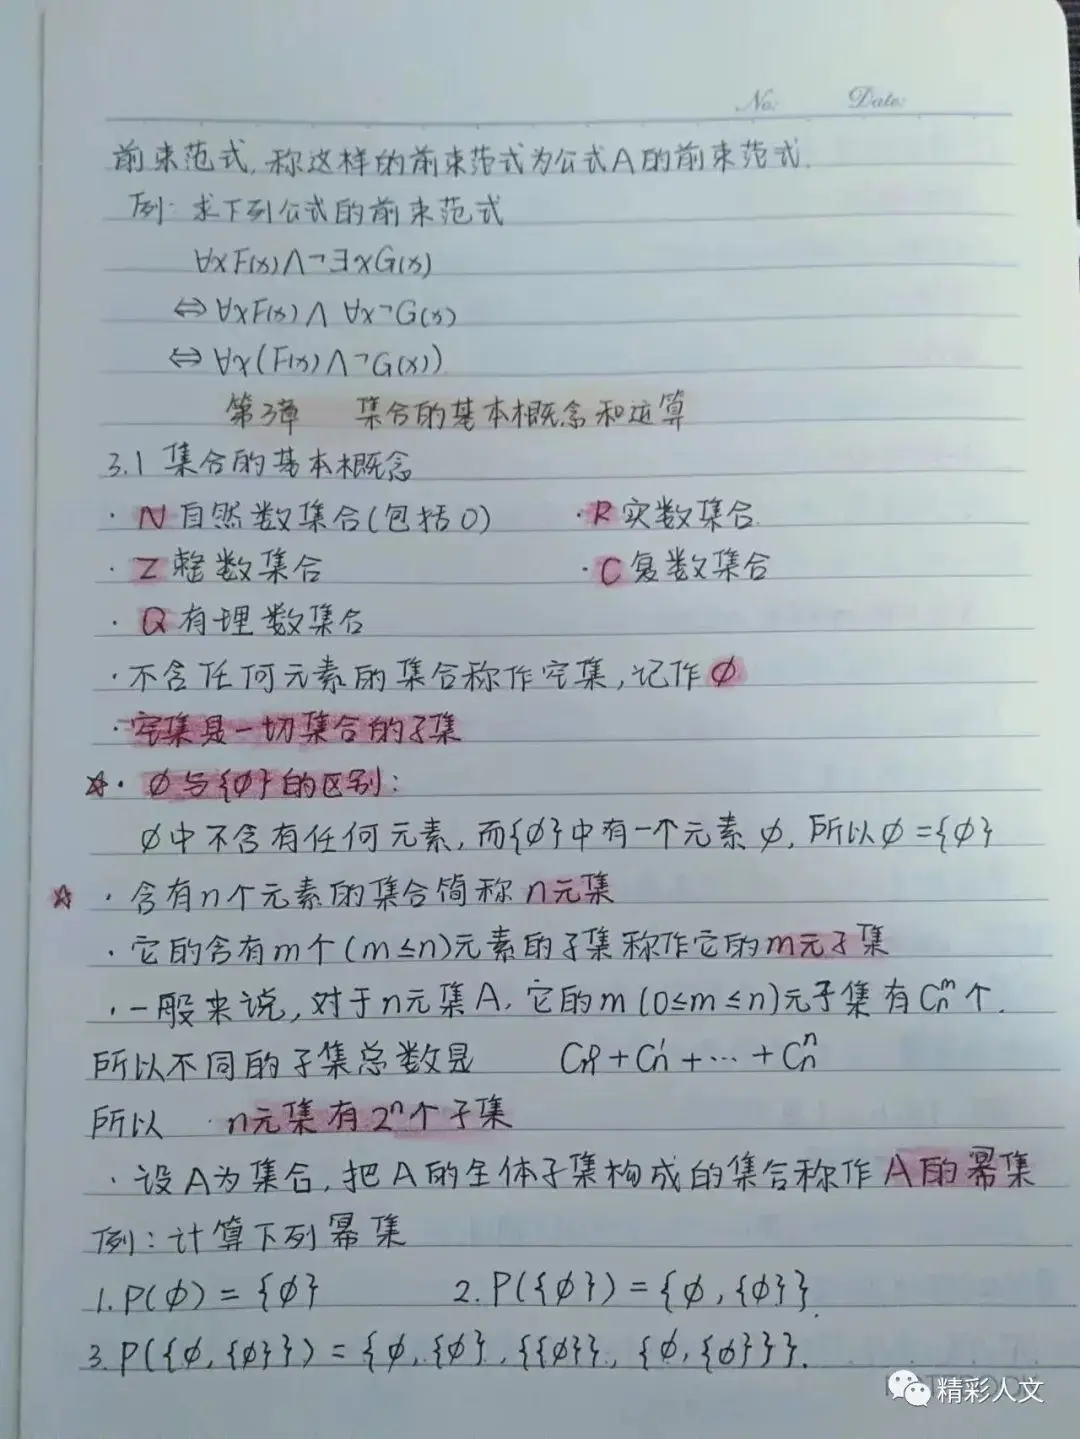 No: Date:
前束范式,称这样的前束范式为公式A的前束范式.
例:求下列公式的前束范式
∀xF(x)∧¬∃xG(x)
⇔∀xF(x)∧ ∀x¬G(x)
⇔∀x(F(x)∧¬G(x))
第3章 集合的基本概念和运算
3.1 集合的基本概念
·N自然数集合(包括0) ·R实数集合.
·Z整数集合 ·C复数集合
·Q有理数集合
·不含任何元素的集合称作空集,记作∅
·空集是一切集合的子集
☆·∅与{∅}的区别:
∅中不含有任何元素,而{∅}中有一个元素∅,所以∅={∅}
☆·含有n个元素的集合简称n元集
·它的含有m个(m≤n)元素的子集称作它的m元子集
·一般来说,对于n元集A,它的m(0≤m≤n)元子集有Cₙᵐ个.
所以不同的子集总数是 Cₙ⁰+Cₙ¹+…+Cₙⁿ
所以 n元集有2ⁿ个子集
·设A为集合,把A的全体子集构成的集合称作A的幂集
例:计算下列幂集
1.P(∅)={∅} 2.P({∅})={∅,{∅}}.
3.P({∅,{∅}})={∅,{∅},{{∅}},{∅,{∅}}}.
精彩人文